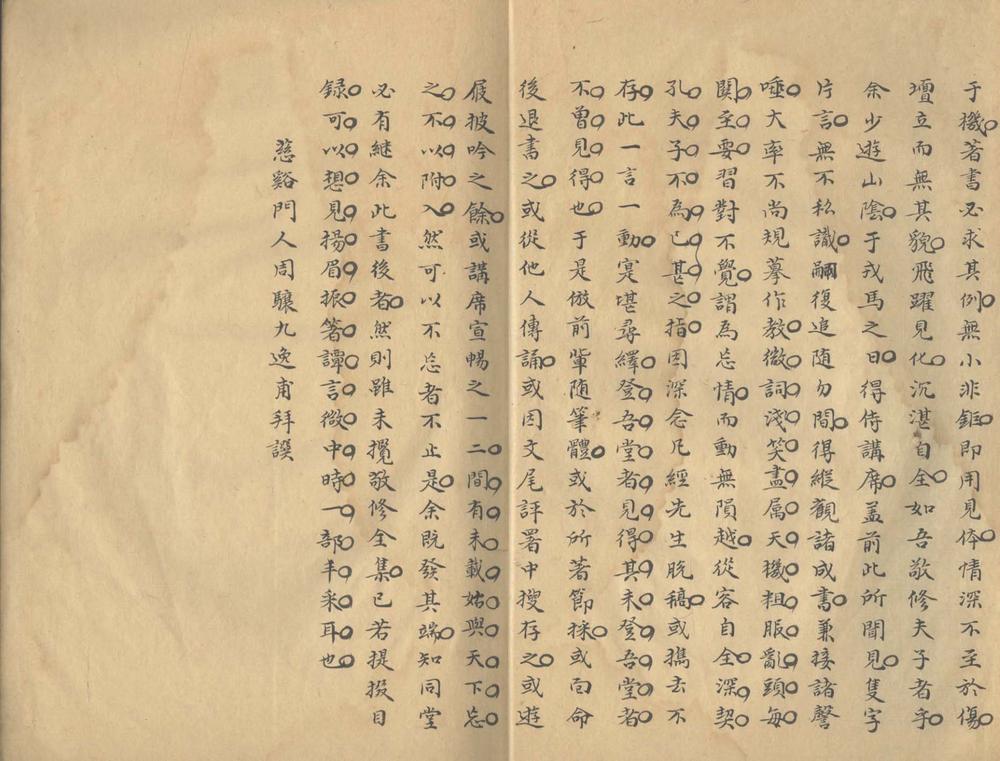 于機著書必求其例無小非鉅即用見体情深不至於傷
壇立而無其貌飛躍見化沉湛自全如吾敬修夫子者乎
余少遊山陰于戎馬之日得侍講席盖前此所聞見隻字
片言無不私識嗣復追随勿間得縱觀諸成書兼接諸謦
唾大率不尚規摹作教微詞淺笑盡属天機粗服亂頭每
関至要習對不覺謂為忘情而動無隕越從容自全深契
孔夫子不為已甚之指因深念凡經先生脫稿或攜去不
存此一言一動寔堪尋繹登吾堂者見得其未登吾堂者
不曾見得也于是倣前輩随筆體或於所著節採或向命
後退書之或從他人傳誦或因文尾評署中搜存之或遊
屐披吟之餘或講席宣暢之一二間有未載姑與天下忘
之不以附入然可以不忘者不止是余既發其端知同堂
必有継余此書後者然則雖未攬敬修全集已若提掇目
録可以想見揚眉振箸譚言微中時一部丰采耳也
慈谿門人周驤九逸甫拜譔